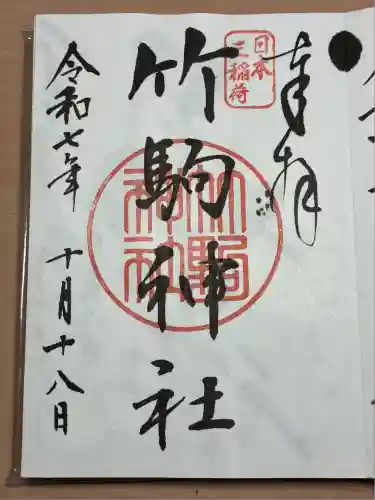 奉拝
日本
三稲荷
竹駒神社
竹駒
神社
令和七年
十月十八日